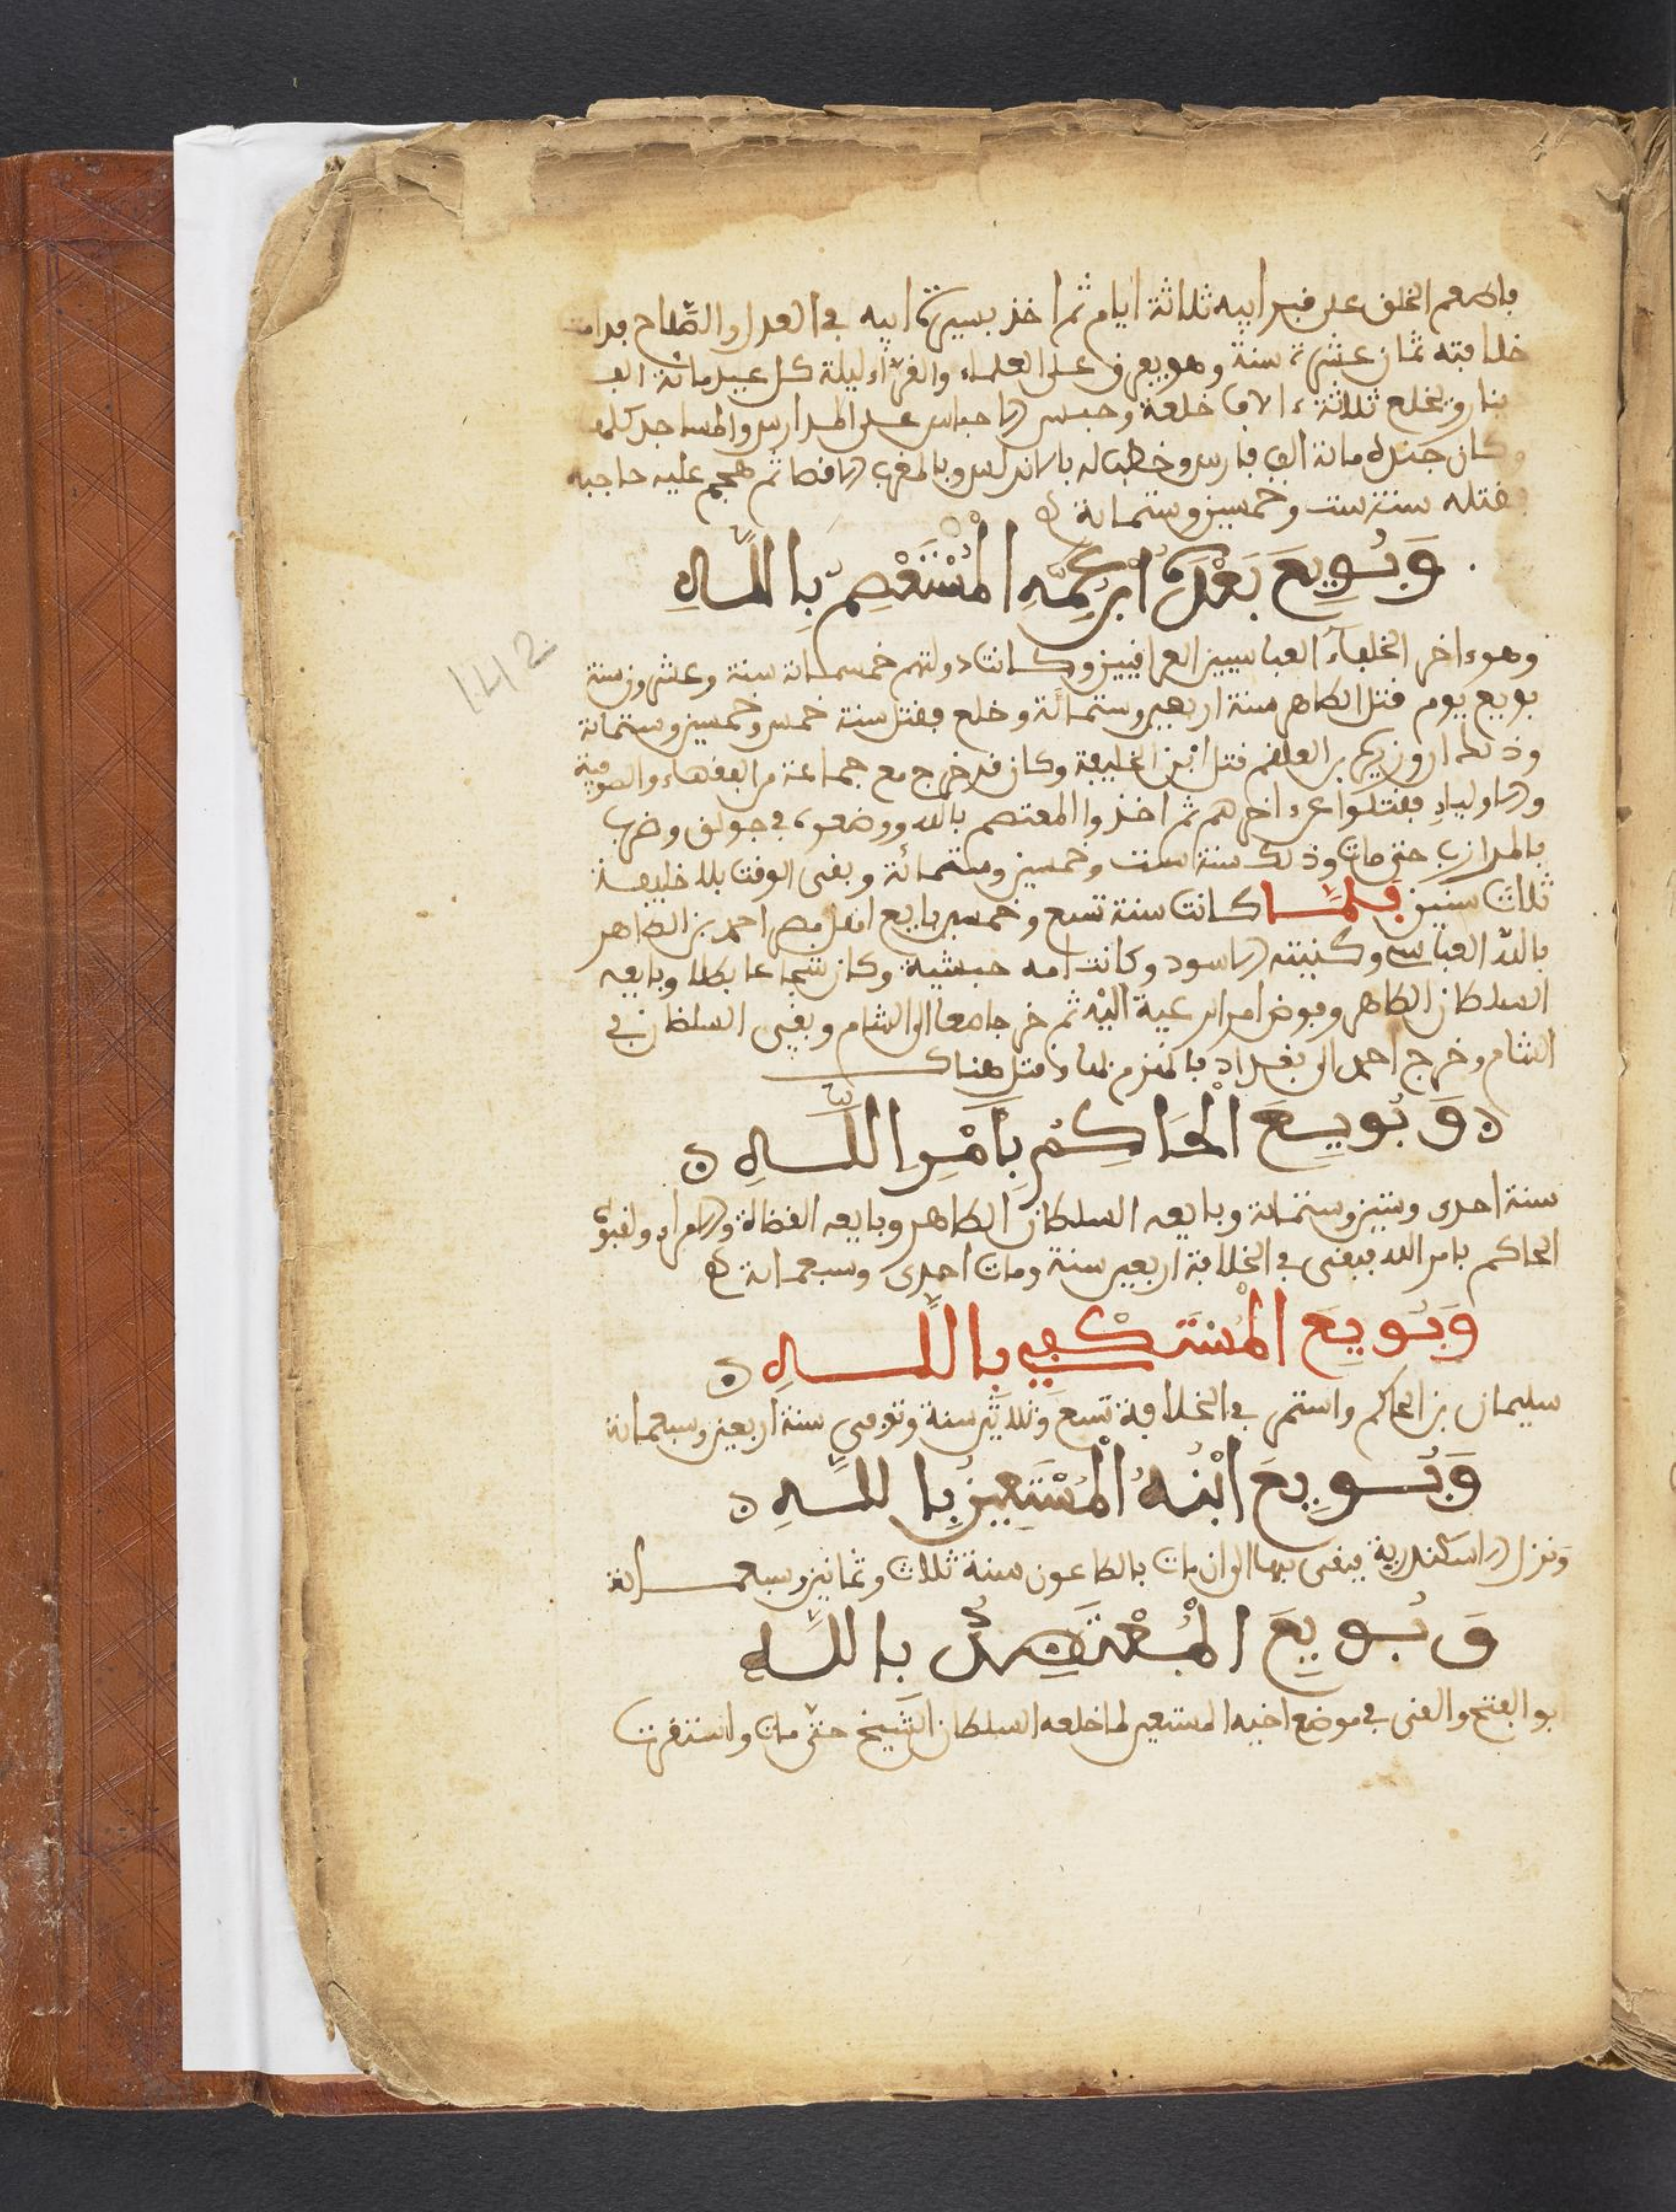 فاطعم الخلق على قبر ابيه ثلاثة ايام ثم اخذ بسيرة ابيه في العدل والصلاح فدامت
خلافته ثمان عشرة سنة وهو يفرق على العلماء والقراء ليلة كل عيد مائة الف
دينار ويخلع ثلاثة ءالاف خلعة وحبس الاحباس على المدارس والمساجد كلها
وكان جنده مائة الف فارس وخطب له بالاندلس وبالمغرب الاقصا ثم هجم عليه حاجبه
فقتله سنة ست وخمسين وستمائة
وَبُويِعَ بَعْدَهُ ابْن عَمِّهِ الْمُسْتَعْصِمُ بِاللَّهِ
وهو ءاخر الخلفآء العباسيين العراقيين وكانت دولتهم خمسمائة سنة وعشرون سنة
بويع يوم قتل الطاهر سنة اربعين وستمائة وخلع فقتل سنة خمس وخمسين وستمائة
وذلك ان وزيره بن العلقم قتل ابن الخليفة وكان قد خرج مع جماعة من الفقهاء والصوفية
والاولياء فقتلوا عن ءاخرهم ثم اخذوا المعتصم بالله ووضعوه في جولق وضرب
بالمدازب حتى مات وذلك سنة ست وخمسين وستمائة وبقى الوقت بلا خليفة
ثلاث سنين فلمَّا كانت سنة تسع وخمسين بايع اهل مصر احمد بن الظاهر
بالله العباسي وكنيته الاسود وكانت امه حبشية وكان شجاعا بطلا وبايعه
السلطان الطاهر وفوض امر الرعية اليه ثم خرجا معا الى الشام وبقي السلطان في
الشام وخرج احمد الى بغداد فانهزم بها وقتل هناك
وَبُويِعَ الْحَاكِمُ بِأَمْرِ اللَّهِ
سنة احدى وستين وستمائة وبايعه السلطان الطاهر وبايعه القضاة والامراء ولقبوه
الحاكم بامر الله فبقى في الخلافة اربعين سنة ومات احدى وسبعمائة
وَبُويِعَ الْمُسْتَكْفِي بِاللَّهِ
سليمان بن الحاكم واستمر في الخلافة تسع وثلاثين سنة وتوفي سنة اربعين وسبعمائة
وَبُويِعَ ابْنُهُ الْمُسْتَعِينُ بِاللَّهِ
ونزل الاسكندرية فبقى بها الى ان مات بالطاعون سنة ثلاث وثمانين وسبعمائة
وَبُويِعَ الْمُعْتَضِدُ بِاللَّهِ
بو الفتح والغنى في موضع اخيه المستعين لما خلعه السلطان الشيخ حتى مات واستقرت
142